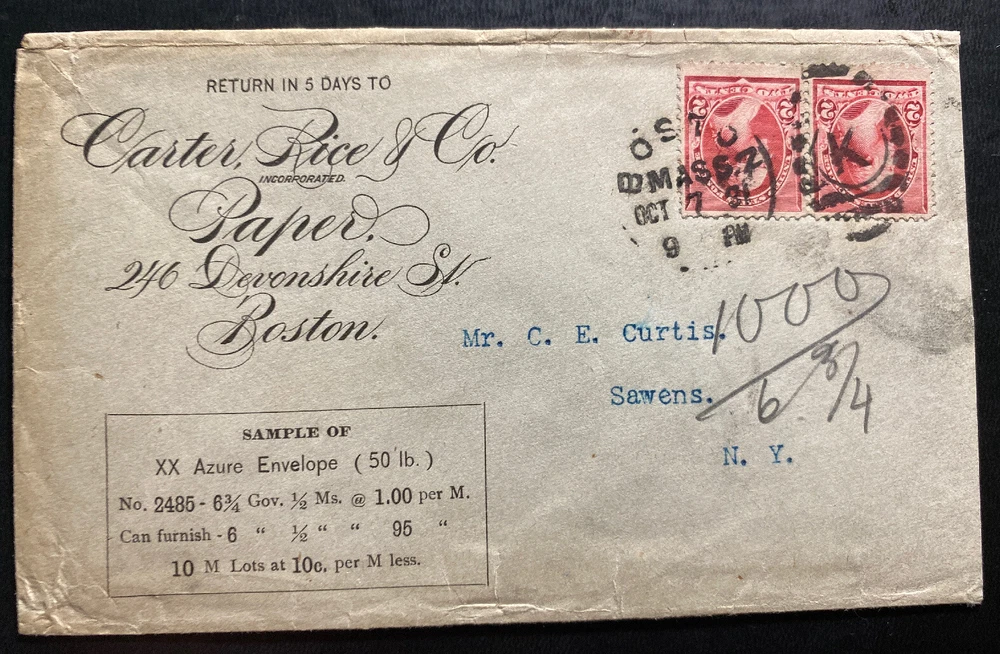 RETURN IN 5 DAYS TO
Carter, Rice & Co.
INCORPORATED.
Paper,
246 Devonshire St.
Boston.
2 2
2 2
MASS.
OCT 7 91
9 PM
K
Mr. C. E. Curtis.
Sawens.
N. Y.
1000
6 3/4
SAMPLE OF
XX Azure Envelope (50 lb.)
No. 2485 - 6¾ Gov. ½ Ms. @ 1.00 per M.
Can furnish - 6 “ ½ “ “ 95 “
10 M Lots at 10c. per M less.